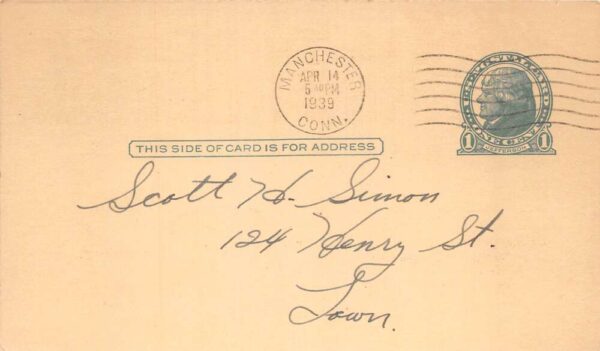 MANCHESTER
APR 14
5 PM
1939
CONN.
U.S. POSTAGE
1 ONE CENT 1
JEFFERSON
THIS SIDE OF CARD IS FOR ADDRESS
Scott H. Simon
124 Henry St.
Town.